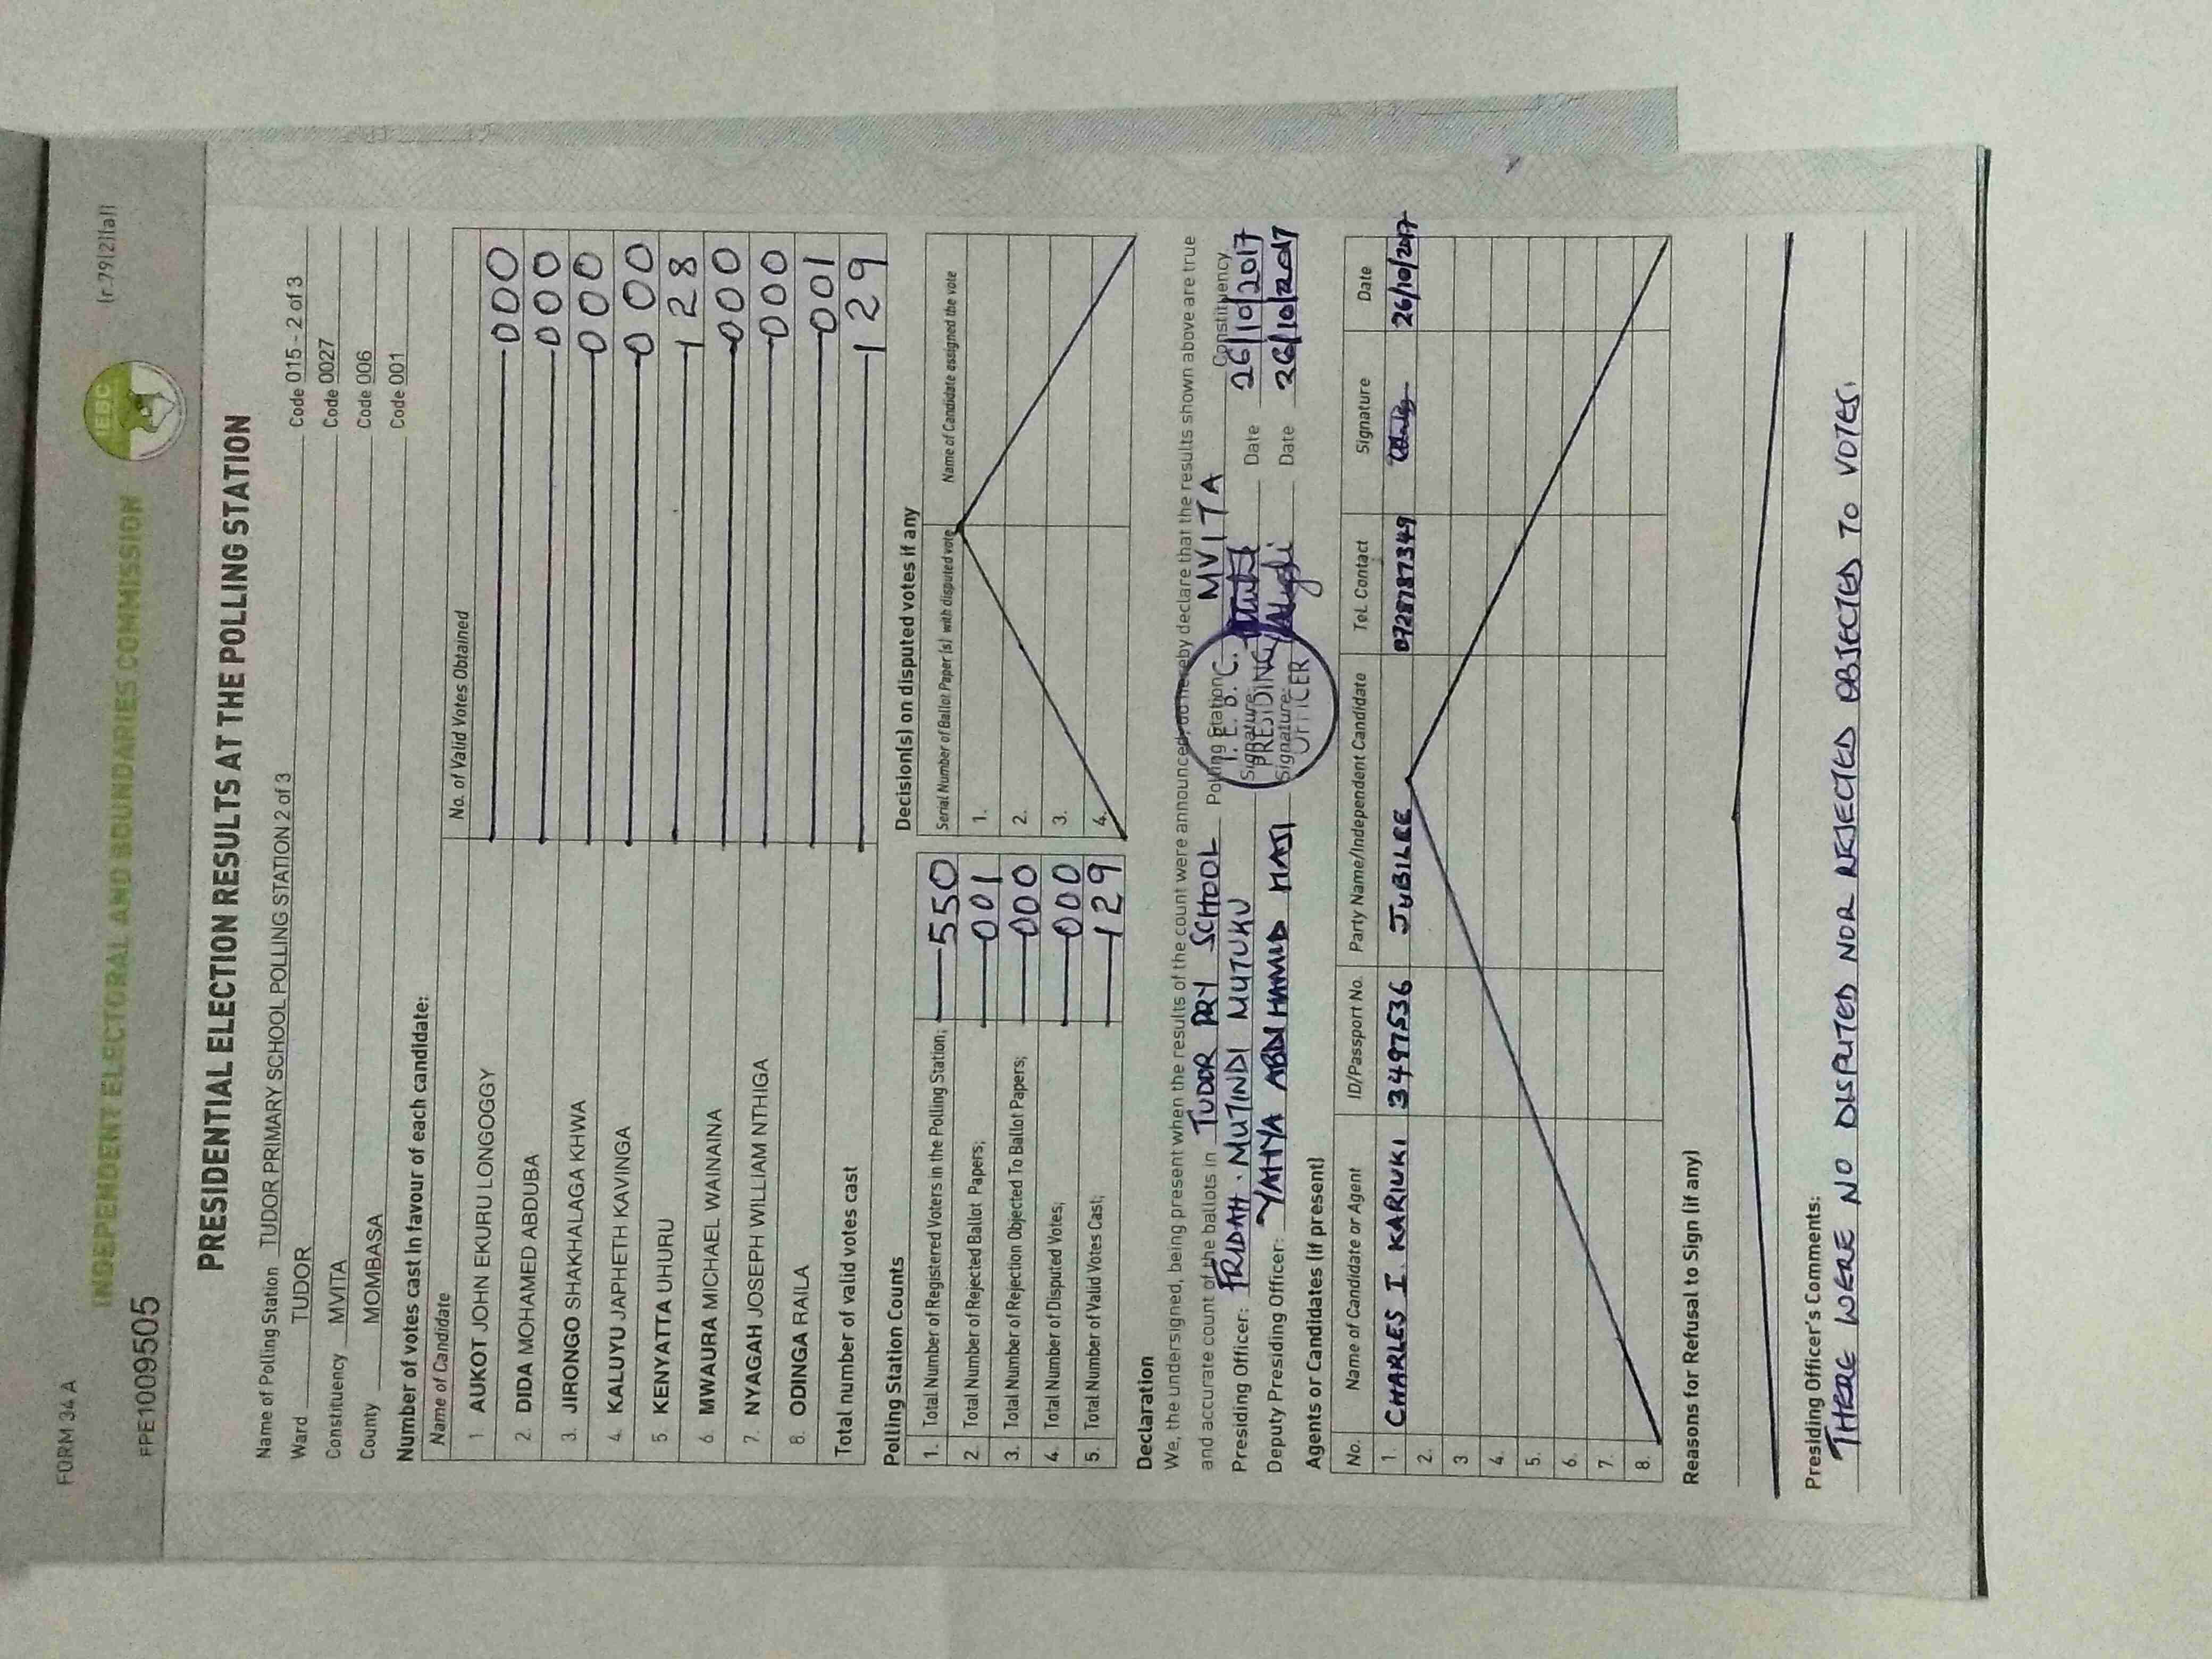 FORM 34 A
(r.79(2)(a))
INDEPENDENT ELECTORAL AND BOUNDARIES COMMISSION
IEBC
FPE1009505
PRESIDENTIAL ELECTION RESULTS AT THE POLLING STATION
Name of Polling Station TUDOR PRIMARY SCHOOL POLLING STATION 2 of 3 Code 015 - 2 of 3
Ward TUDOR Code 0027
Constituency MVITA Code 006
County MOMBASA Code 001
Number of votes cast in favour of each candidate:
Name of Candidate No. of Valid Votes Obtained
1 AUKOT JOHN EKURU LONGOGGY 000
2. DIDA MOHAMED ABDUBA 000
3. JIRONGO SHAKHALAGA KHWA 000
4. KALUYU JAPHETH KAVINGA 000
5. KENYATTA UHURU 128
6. MWAURA MICHAEL WAINAINA 000
7. NYAGAH JOSEPH WILLIAM NTHIGA 000
8. ODINGA RAILA 001
Total number of valid votes cast 129
Polling Station Counts
1. Total Number of Registered Voters in the Polling Station; 550
2. Total Number of Rejected Ballot Papers; 001
3. Total Number of Rejection Objected To Ballot Papers; 000
4. Total Number of Disputed Votes; 000
5. Total Number of Valid Votes Cast; 129
Decision(s) on disputed votes if any
Serial Number of Ballot Paper (s) with disputed vote Name of Candidate assigned the vote
1.
2.
3.
4.
Declaration
We, the undersigned, being present when the results of the count were announced, do hereby declare that the results shown above are true
and accurate count of the ballots in TUDOR PRY SCHOOL Polling Station MVITA Constituency
Presiding Officer: FRIDAH . MUTINDI MUTUKU Signature: Date 26/10/2017
Deputy Presiding Officer: YAHYA ABDIHAMID HAJI Signature: Date 26/10/2017
I. E. B. C.
PRESIDING
OFFICER
Agents or Candidates (if present)
No. Name of Candidate or Agent ID/Passport No. Party Name/Independent Candidate Tel. Contact Signature Date
1. CHARLES I. KARIUKI 33497536 JUBILEE 0728787349 26/10/2017
2.
3
4.
5.
6.
7.
8.
Reasons for Refusal to Sign (if any)
Presiding Officer's Comments:
THERE WERE NO DISPUTED NOR REJECTED OBJECTED TO VOTES.